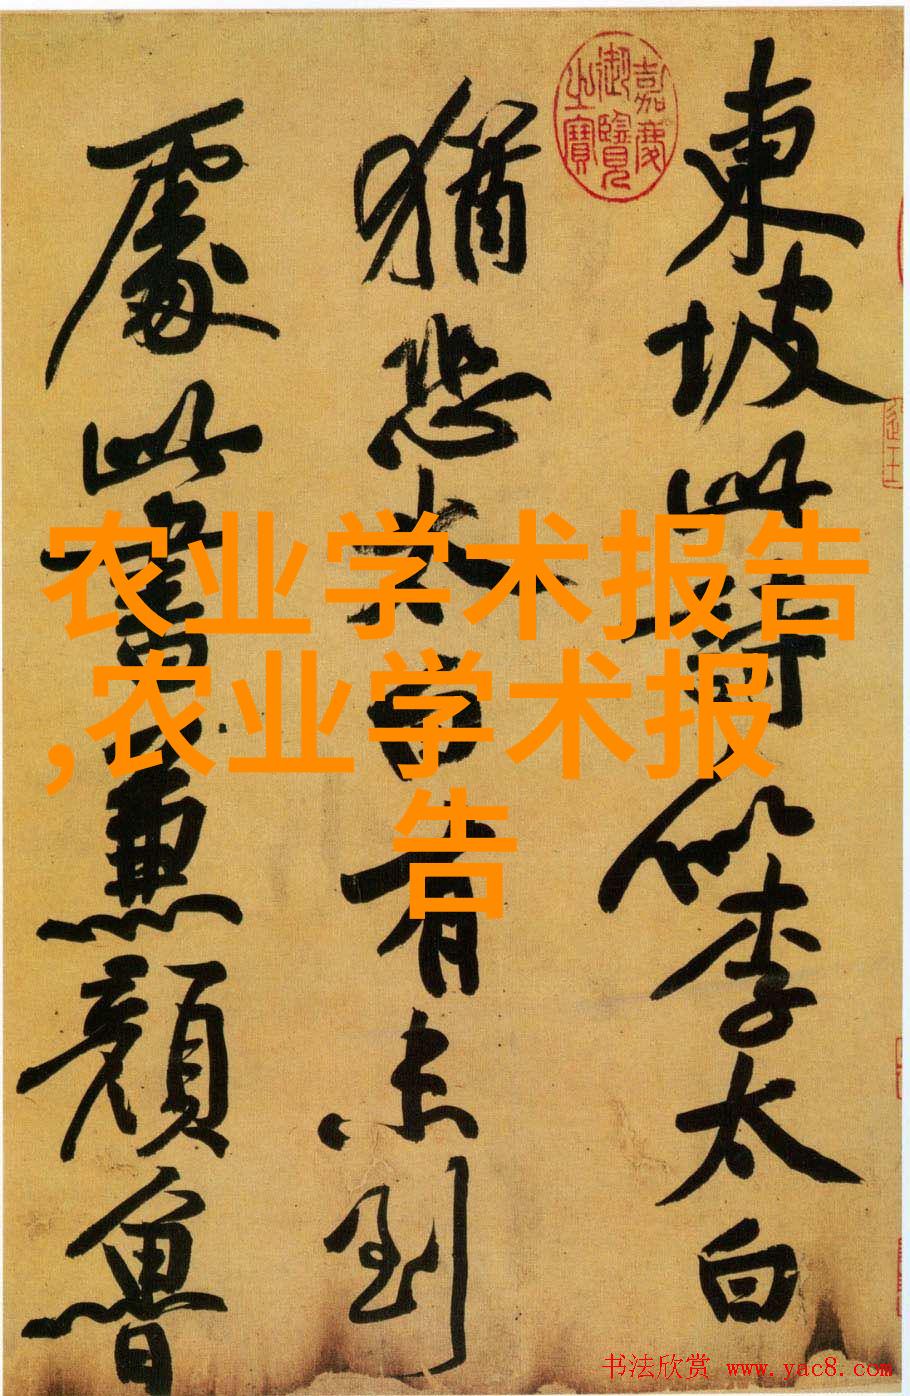 東坡此詩似李太白
猶恐太白有未到
處此書兼顏魯
嘉慶御覽之寶
农业学术报告
,农业学术报
告
书法欣赏 www.yac8.com